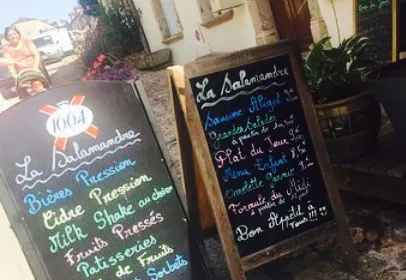 1664
La Salamandre
Bières Pression
Cidre Pression
Milk Shake au choix
Fruits Pressés
Patisseries
de Fruits
Sorbets
La Salamandre
Saucisse Aligot
Grandes Salades
à partir de
Plat du Jour
Menu Enfant
Omelette garnie
du Midi
à partir de
Bon Appétit à
Tous !!!